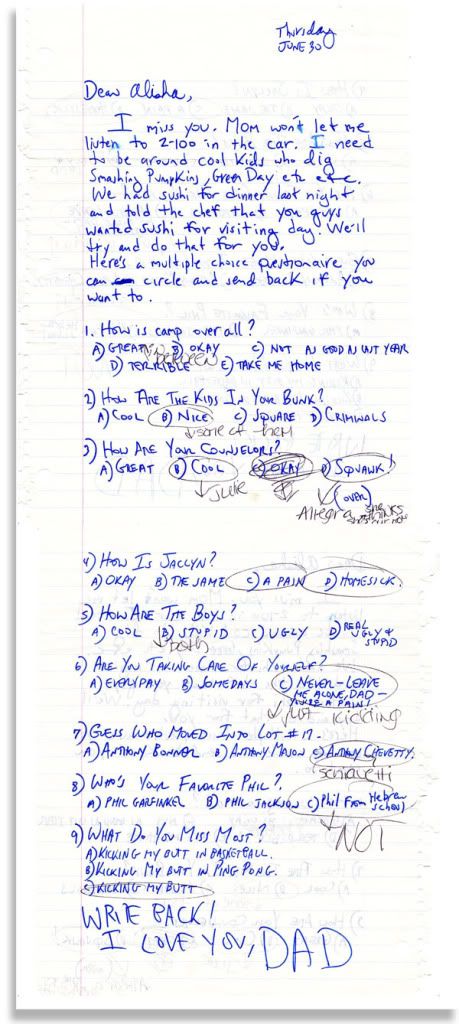 Thursday
JUNE 30
Dear Alisha,
I miss you. Mom won't let me
listen to Z-100 in the car. I need
to be around cool kids who dig
Smashing Pumpkins, Green Day etc etc.
We had sushi for dinner last night
and told the chef that you guys
wanted sushi for visiting day. We'll
try and do that for you.
Here's a multiple choice questionaire you
can circle and send back if you
want to.
1. How is camp over all?
A) GREAT B) OKAY C) NOT AS GOOD AS LAST YEAR
in between
D) TERRIBLE E) TAKE ME HOME
2) HOW ARE THE KIDS IN YOUR BUNK?
A) COOL B) NICE C) SQUARE D) CRIMINALS
some of them
3) HOW ARE YOUR COUNSELORS?
A) GREAT B) COOL C) OKAY D) SQUAWK!
Julie
(over)
Allegra she thinks
she's our mom
4) HOW IS JACLYN?
A) OKAY B) THE SAME C) A PAIN D) HOMESICK.
5) HOW ARE THE BOYS?
A) COOL B) STUPID C) UGLY D) REAL UGLY & STUPID
both
6) ARE YOU TAKING CARE OF YOURSELF?
A) EVERYDAY B) SOMEDAYS C) NEVER - LEAVE
ME ALONE, DAD -
YOU'RE A PAIN!
just kidding
7) GUESS WHO MOVED INTO LOT #17.
A) ANTHONY BONNER B) ANTHONY MASON C) ANTHONY CHEVETTY.
8) WHO'S YOUR FAVORITE PHIL?
A) PHIL GARFINKEL B) PHIL JACKSON C) Phil From Hebrew
school
NOT
9) WHAT DO YOU MISS MOST?
A) KICKING MY BUTT IN BASKETBALL.
B) KICKING MY BUTT IN PING PONG.
C) KICKING MY BUTT
WRITE BACK!
I LOVE YOU, DAD